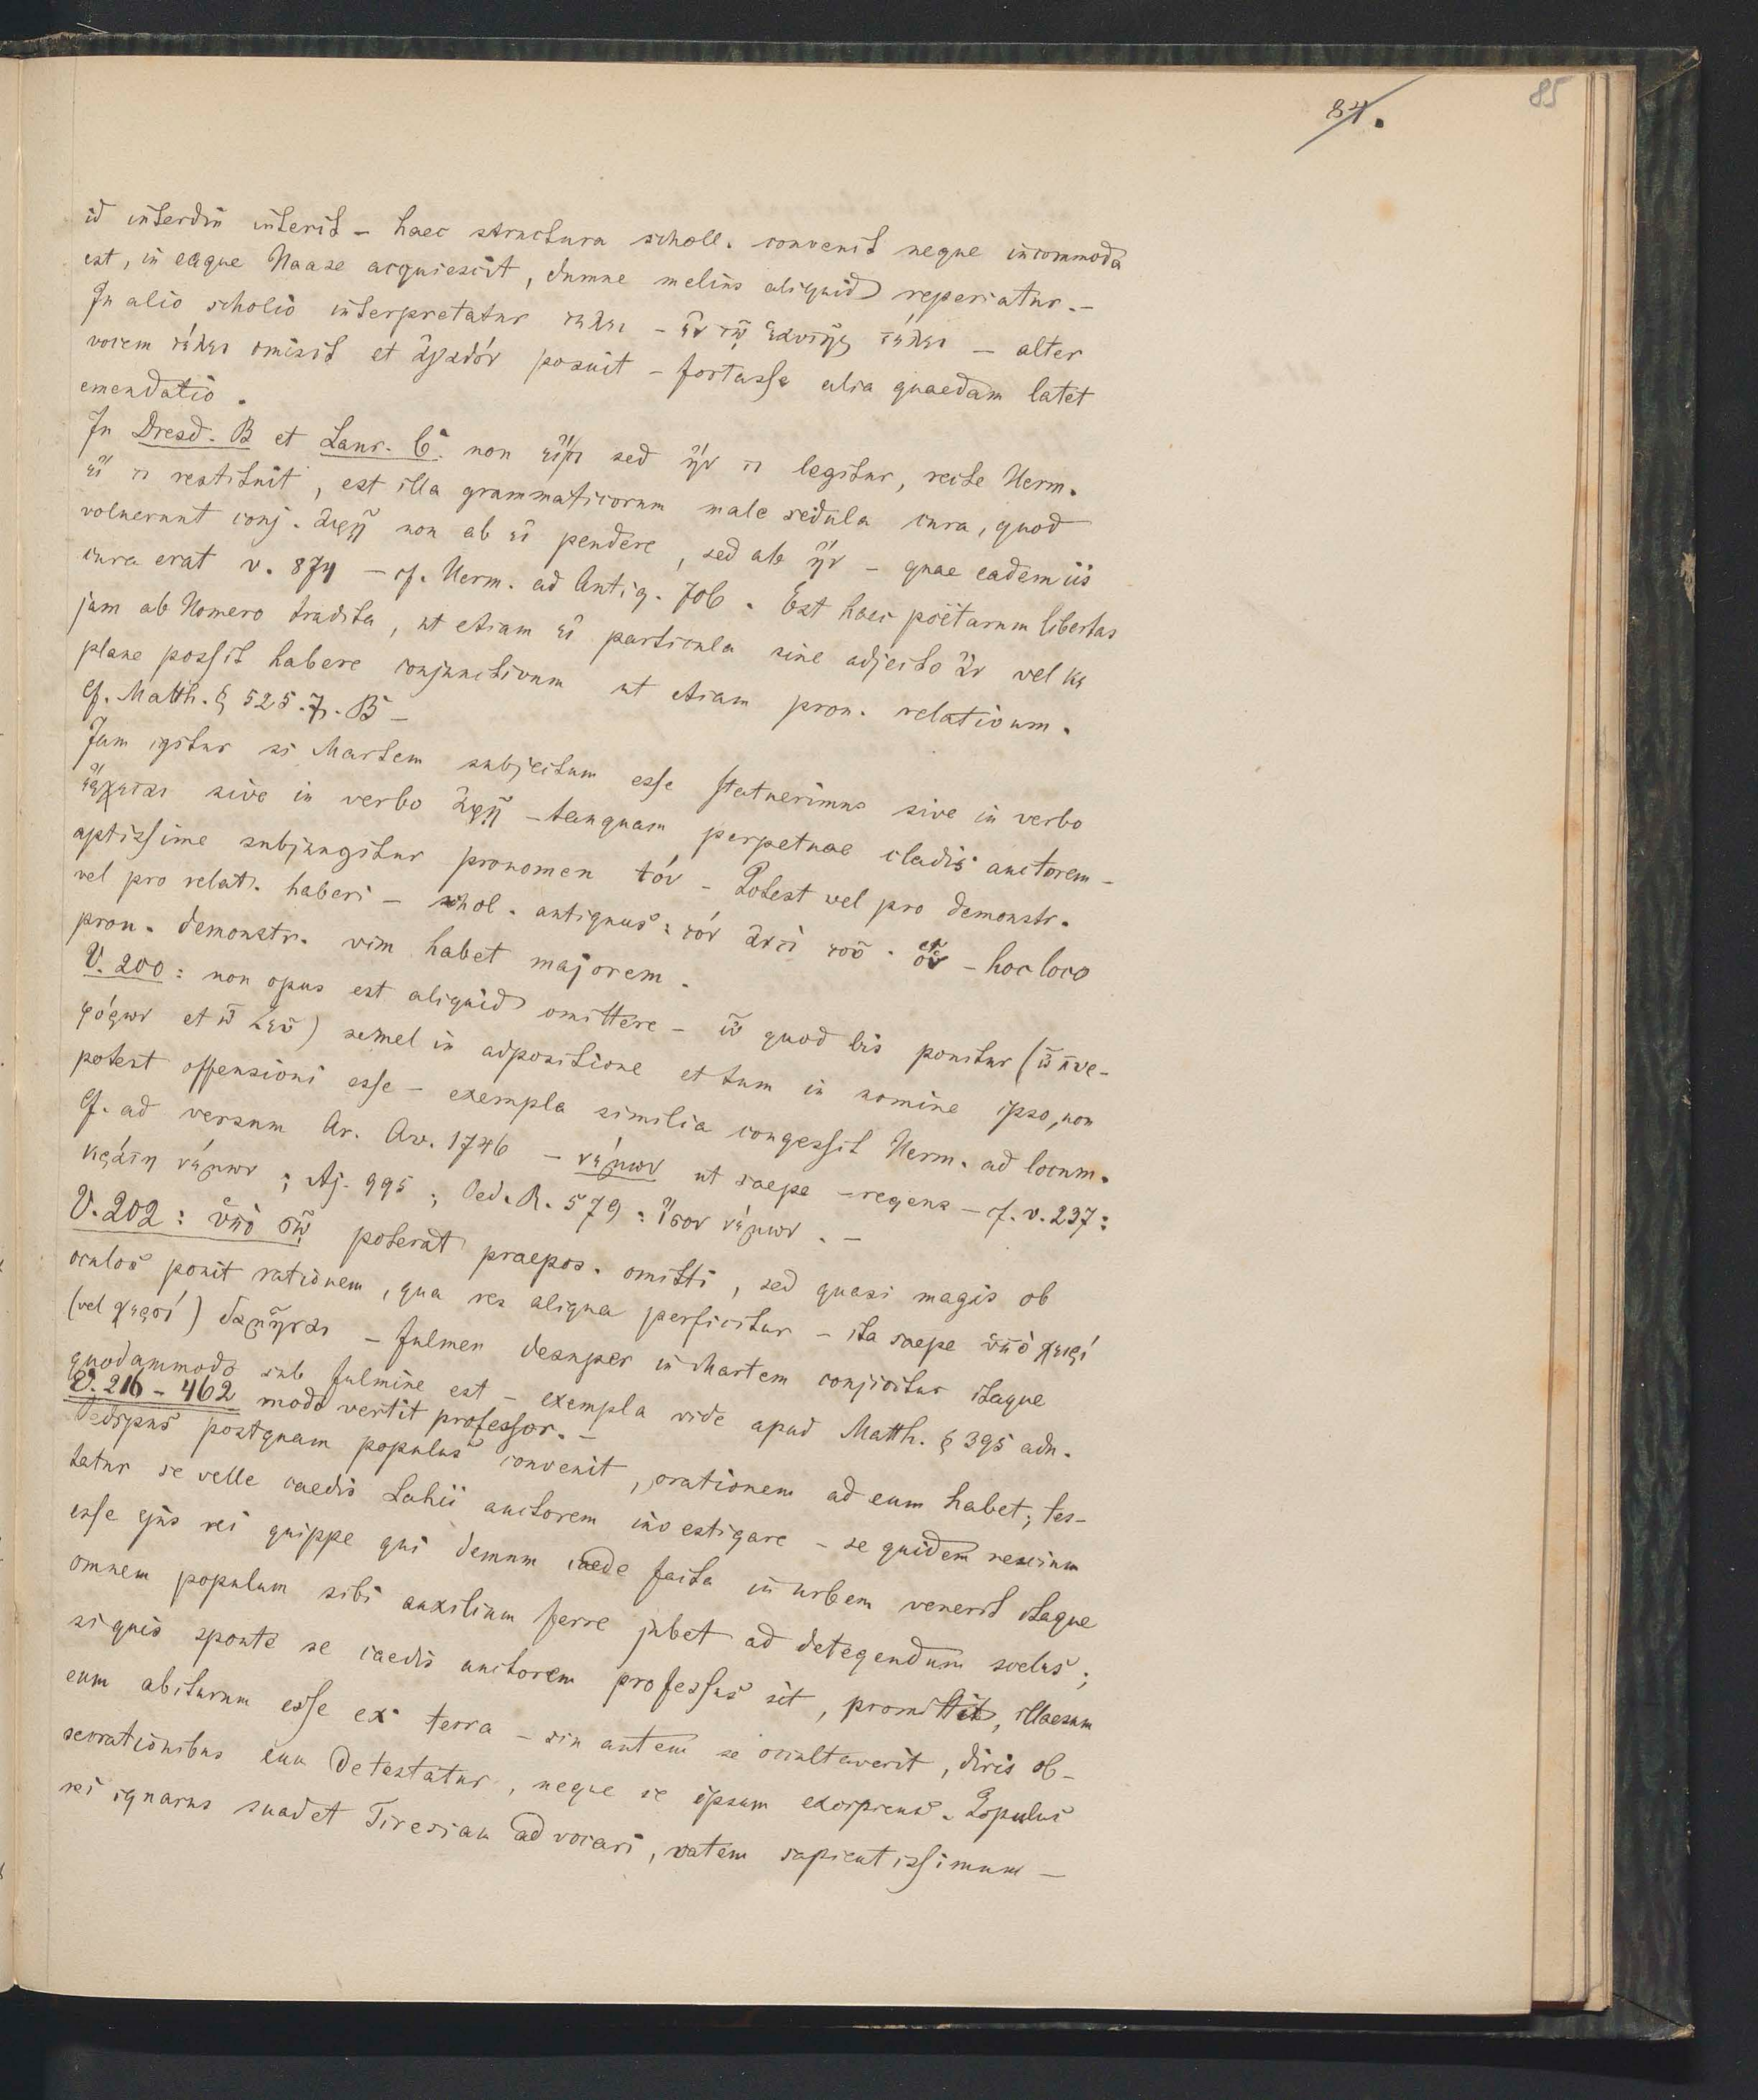 84.
85
id interdiu interit – haec structura scholl. convenit neque incommoda
est, in eaque Haase acquiescit, dumne melius aliquid reperiatur. –
In alio scholio interpretatur τέλει – ἐν τῷ ἑαυτῆς τέλει – alter
vocem τέλει omisit et ἀγαθόν posuit – fortasse alia quaedam latet
emendatio.
In Dresd. B et Laur. C. non εἴ τι sed ἤν τι legitur, recte Herm.
εἴ τι restituit, est illa grammaticorum male sedula cura, quod
voluerunt conj. ἀφῇ non ab εἰ pendere, sed ab ἤν – quae eadem iis
cura erat v. 874 – cf. Herm. ad Antig. 706. Est haec poëtarum libertas
jam ab Homero tradita, ut etiam εἰ particula sine adjecto ἄν vel κε
plane possit habere conjunctivum ut etiam pron. relativum.
Cf. Matth. § 525. 7. B –
Jam igitur si Martem subjectum esse statuerimus sive in verbo
ἔρχεται sive in verbo ἀφῇ – tanquam perpetuae cladis auctorem –
aptissime subjungitur pronomen τόν – Potest vel pro demonstr.
vel pro relat. haberi – schol. antiquus: τόν ἀντὶ τοῦ · ὅν – hoc loco
pron. demonstr. vim habet majorem.
V. 200: non opus est aliquid omittere – ὦ quod bis ponitur (ὦ πυρ-
φόρων et ὦ Ζεῦ) semel in adpositione et tum in nomine ipso, non
potest offensioni esse – exempla similia congessit Herm. ad locum.
Cf. ad versum Ar. Av. 1746 – νέμων ut saepe – regens – cf. v. 237:
κράτη νέμων; Aj. 995; Oed. R. 579: ἴσον νέμων. –
V. 202: ὑπὸ σῷ poterat praepos. omitti, sed quasi magis ob
oculos ponit rationem, qua res aliqua perficitur – ita saepe ὑπὸ χειρί
(vel χερσί) δαμῆναι – fulmen desuper in Martem conjicitur itaque
quodammodo sub fulmine est – exempla vide apud Matth. § 395 adn.
V. 216 – 462 modo vertit professor. –
Oedipus postquam populus convenit, orationem ad eum habet; tes-
tatur se velle caedis Lahii auctorem investigare – se quidem nescium
esse ejus rei quippe qui demum caede facta in urbem venerit itaque
omnem populum sibi auxilium ferre jubet ad detegendum scelus;
si quis sponte se caedis auctorem professus sit, promittit, illaesum
eum abiturum esse ex terra – sin autem se occultaverit, diris ob-
secrationibus eum detestatur, neque se ipsum excipiens. Populus
rei ignarus suadet Tiresiam advocari, vatem sapientissimum –